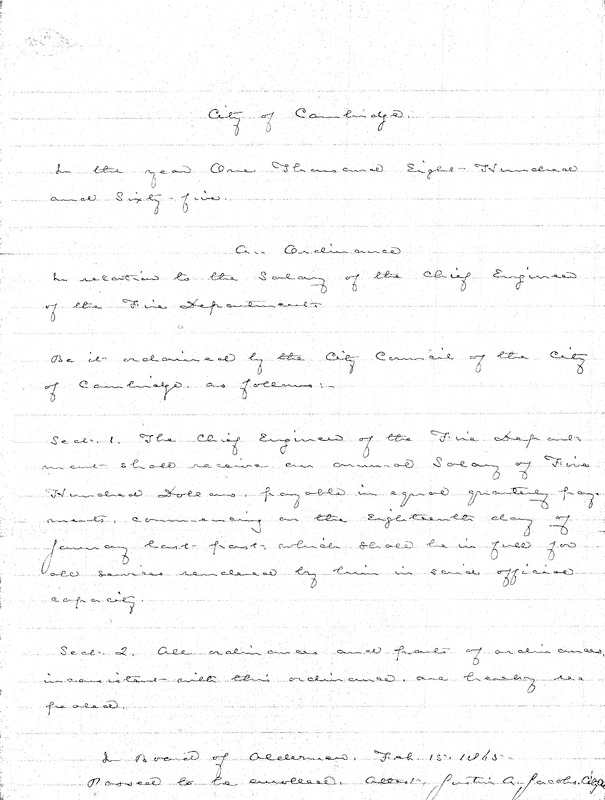 City of Cambridge.
In the year One Thousand Eight Hundred
and Sixty-five.
An Ordinance
In relation to the Salary of the Chief Engineer
of the Fire Department.
Be it ordained by the City Council of the City
of Cambridge, as follows:-
Sect. 1. The Chief Engineer of the Fire Depart-
ment shall receive an annual Salary of Five
Hundred Dollars, payable in equal quarterly pay-
ments, commencing on the Eighteenth day of
January last past, which shall be in full for
all services rendered by him in said official
capacity.
Sect. 2. All ordinances and parts of ordinances,
inconsistent with this ordinance, are hereby re-
pealed.
In Board of Aldermen, Feb. 15. 1865.
Passed to be enrolled. Attest, Justin A. Jacobs, City